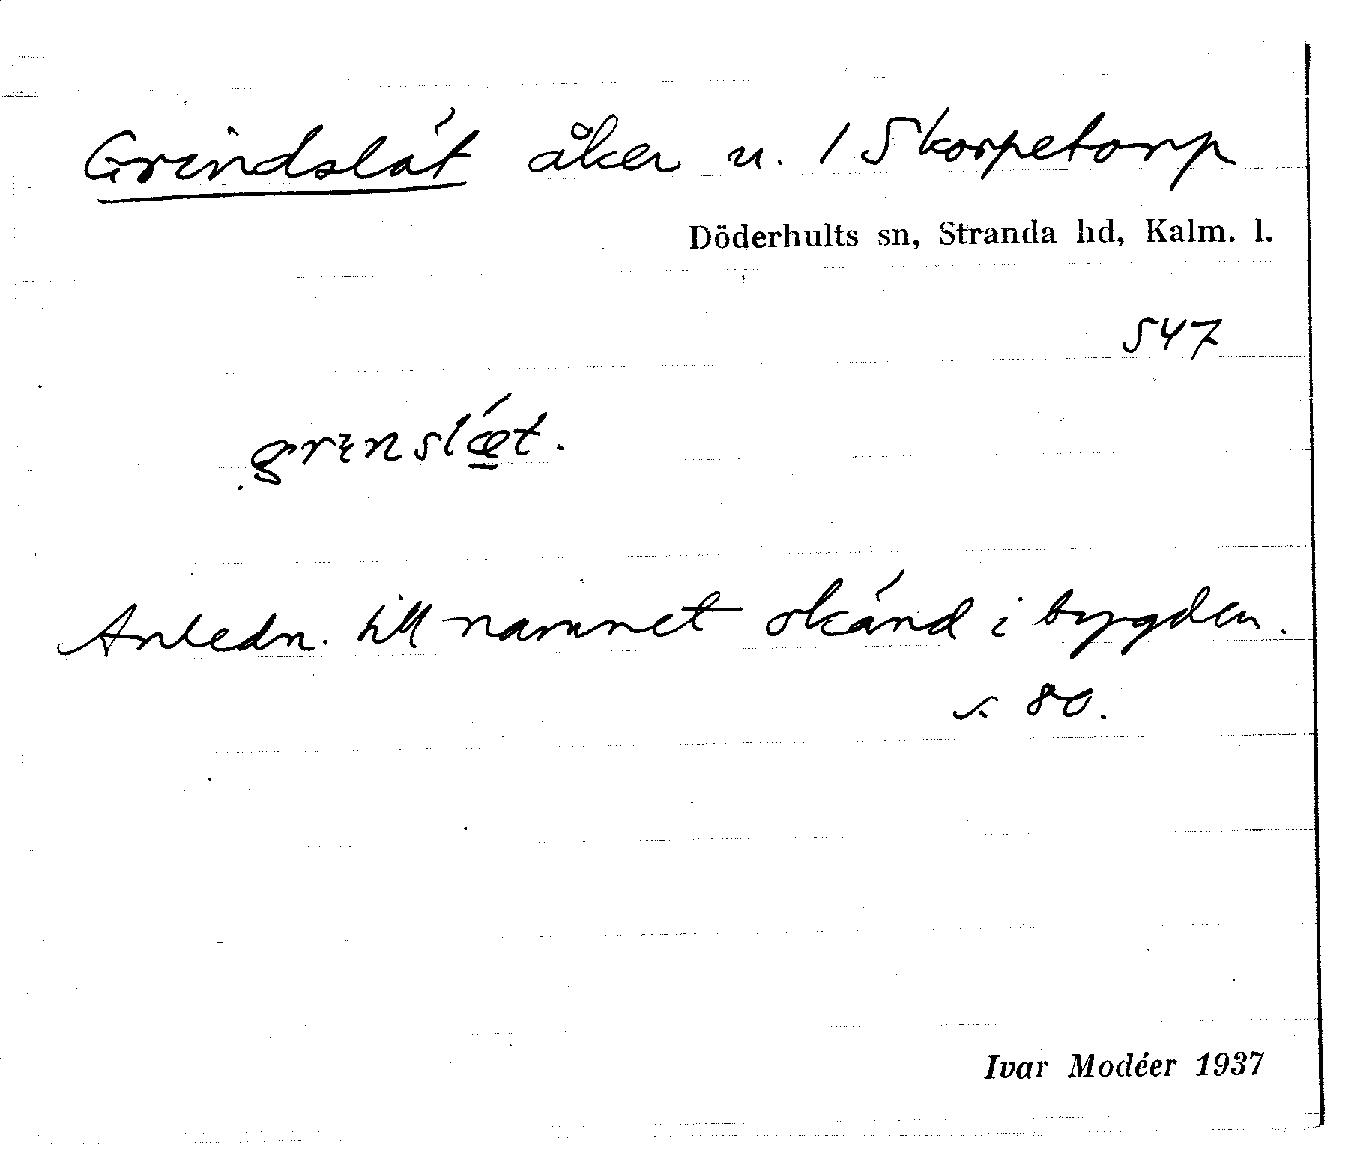 Grindslät åker u. 1 Skorpetorp
Döderhults sn, Stranda hd, Kalm. l.
547
grınslǽ̲t.
Anledn. till namnet okänd i bygden.
s. 80.
Ivar Modéer 1937